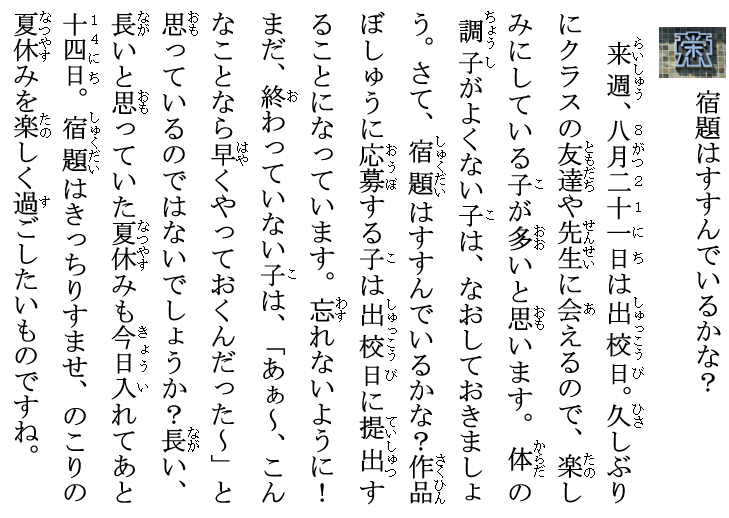 宿題はすすんでいるかな？
来週、八月二十一日は出校日。久しぶり
にクラスの友達や先生に会えるので、楽し
みにしている子が多いと思います。体の
調子がよくない子は、なおしておきましょ
う。さて、宿題はすすんでいるかな？作品
ぼしゅうに応募する子は出校日に提出す
ることになっています。忘れないように！
まだ、終わっていない子は、「あぁ～、こん
なことなら早くやっておくんだった～」と
思っているのではないでしょうか？長い、
長いと思っていた夏休みも今日入れてあと
十四日。宿題はきっちりすませ、のこりの
夏休みを楽しく過ごしたいものですね。